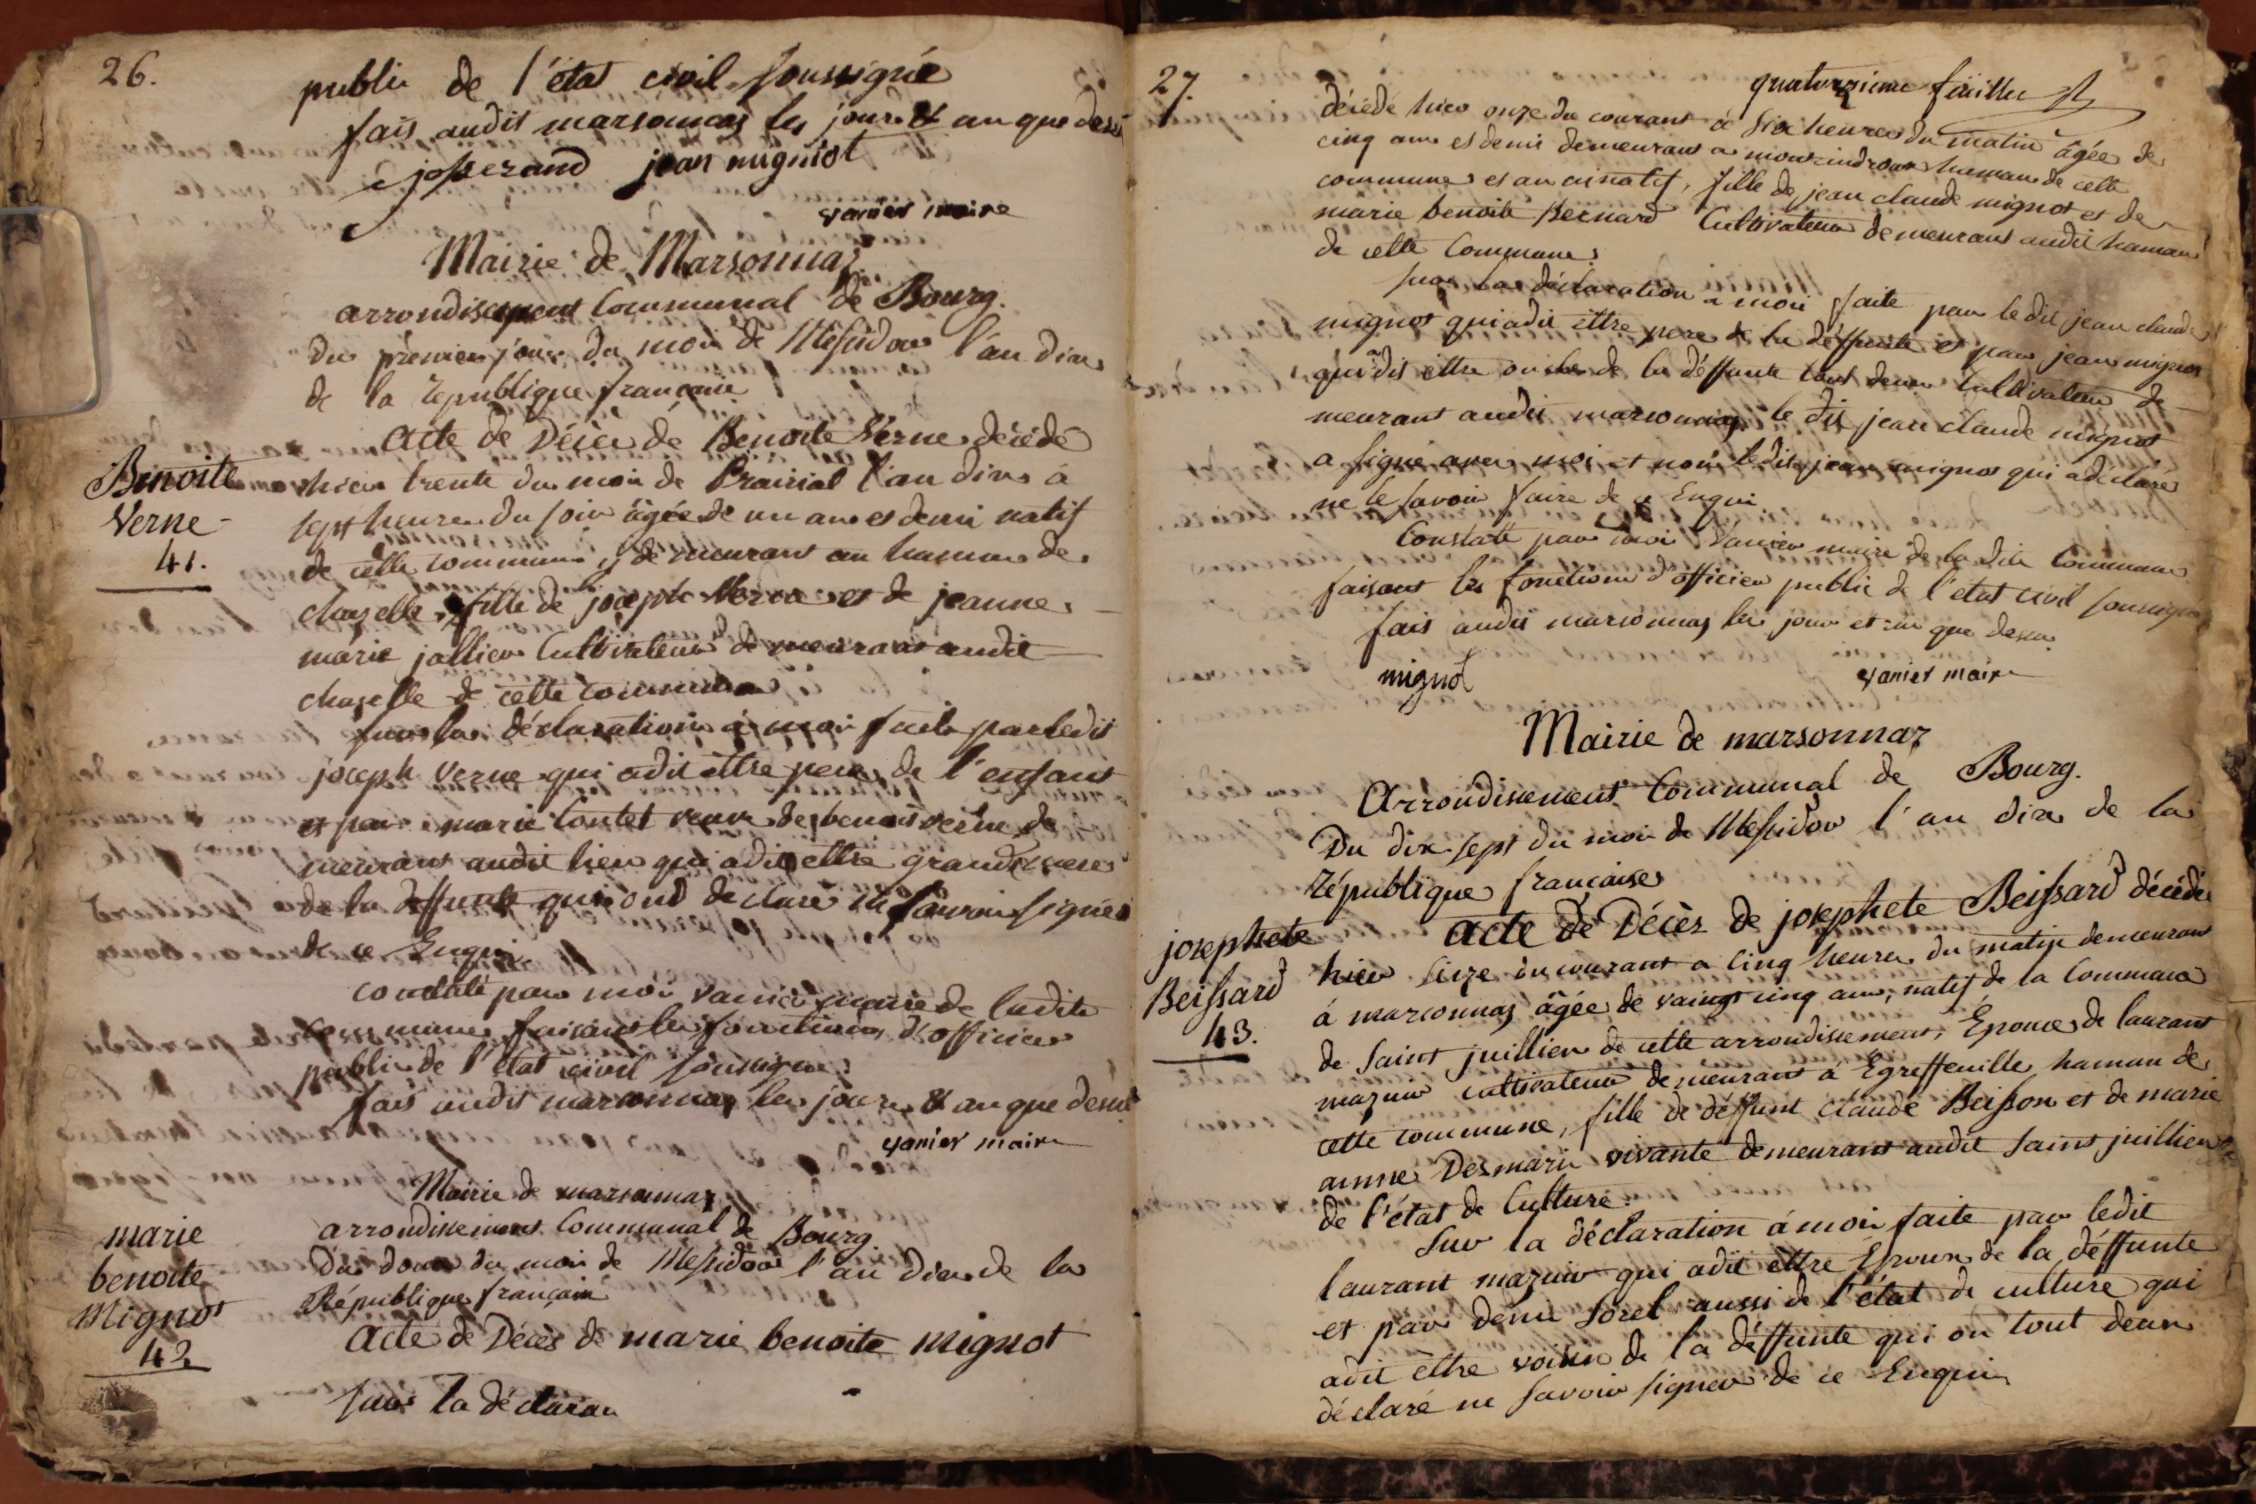 26.
public de l'état civil soussigné
fais audit marsonnas les jours & an que dessus
josserand jean mugniot
vanier maire
Mairie de Marsonnaz
arrondissement Communal de Bourg.
du premier jour du mois de Messidor l'an dix
de la republique française
acte de Décès de Benoite Verne décédé
Benoite
Verne
41.
hier trente du mois de Prairial l'an dix à
sept heures du soir âgée de un ans et demi natif
de cette commune y demeurant au hamau de
chazelle, fille de joseph Verne et de jeanne
marie jallier Cultivateur demeurant audit
chazelle de cette commune
sur la déclaration à moi faite par ledit
joseph Verne qui a dit ettre pere de l'enfant
et par marie Contet veuve de benoit verne de
meurant audit lieu qui a dit ettre grand mere
de la deffunte qui ont declaré ne savoir signer
de ce Enquis
constaté par moi vanier maire de ladite
commune faisant les fonctions d'officier
public de l'état civil soussigné
fais audit marsonnas les jours & an que dessus
vanier maire
Mairie de marsonnaz
arrondissement Communal de Bourg
Du douze du mois de Messidor l'an dix de la
République française
marie
benoite
Mignot
42
Acte de Décès de marie benoite mignot
sur la déclaration
27.
quatorzieme feüillet
décédé hier onze du courant à six heures du matin âgée de
cinq ans et demis demeurant a hamau de cette
commune et au natif, fille de jean claude mignot et de
marie benoite Bernard Cultivateur demeurant audit hamau
de cette Commune.
sur la déclaration a moi faite par le dit jean claude
mignot qui a dit ettre pere de la déffunte et par jean mignot
qui a dit ettre oncle de la déffunte tout deux Cultivateur de
meurant audit marsonnas, le dit jean claude mignot
a signé avec moi et non ledit jean mignot qui a déclaré
ne le savoir faire de ce Enquis
Constaté par moi Vanier maire de la dite Commune
faisant les fonctions d'officier public de l'état civil soussigné
fais audit marsonnas les jours et an que dessus.
mignot vanier maire
Mairie de marsonnaz
Arrondissement Communal de Bourg.
Du dix sept du mois de Messidor l'an dix de la
république française
josephete
Beissard
43.
acte de Décès de josephete Beissard décédée
hier seize du courant a cinq heures du matin demeurant
à marsonnas âgée de vaingt cinq ans, natif de la Commune
de Saint juillien de cette arrondissement, Épouce de laurant
mazuir cultivateur demeurant à Égreffeuille hamau de
cette commune, fille de déffunt claude Beisson et de marie
anne Desmaris vivante demeurant audit saint juillien
de l'état de Culture.
Sur la déclaration à moi faite par ledit
laurant mazuir qui a dit ettre Époux de la déffunte
et par denis Sorel aussi de l'état de culture qui
a dit ettre voisin de la déffunte qui on tout deux
déclaré ne savoir signer de ce Enquis